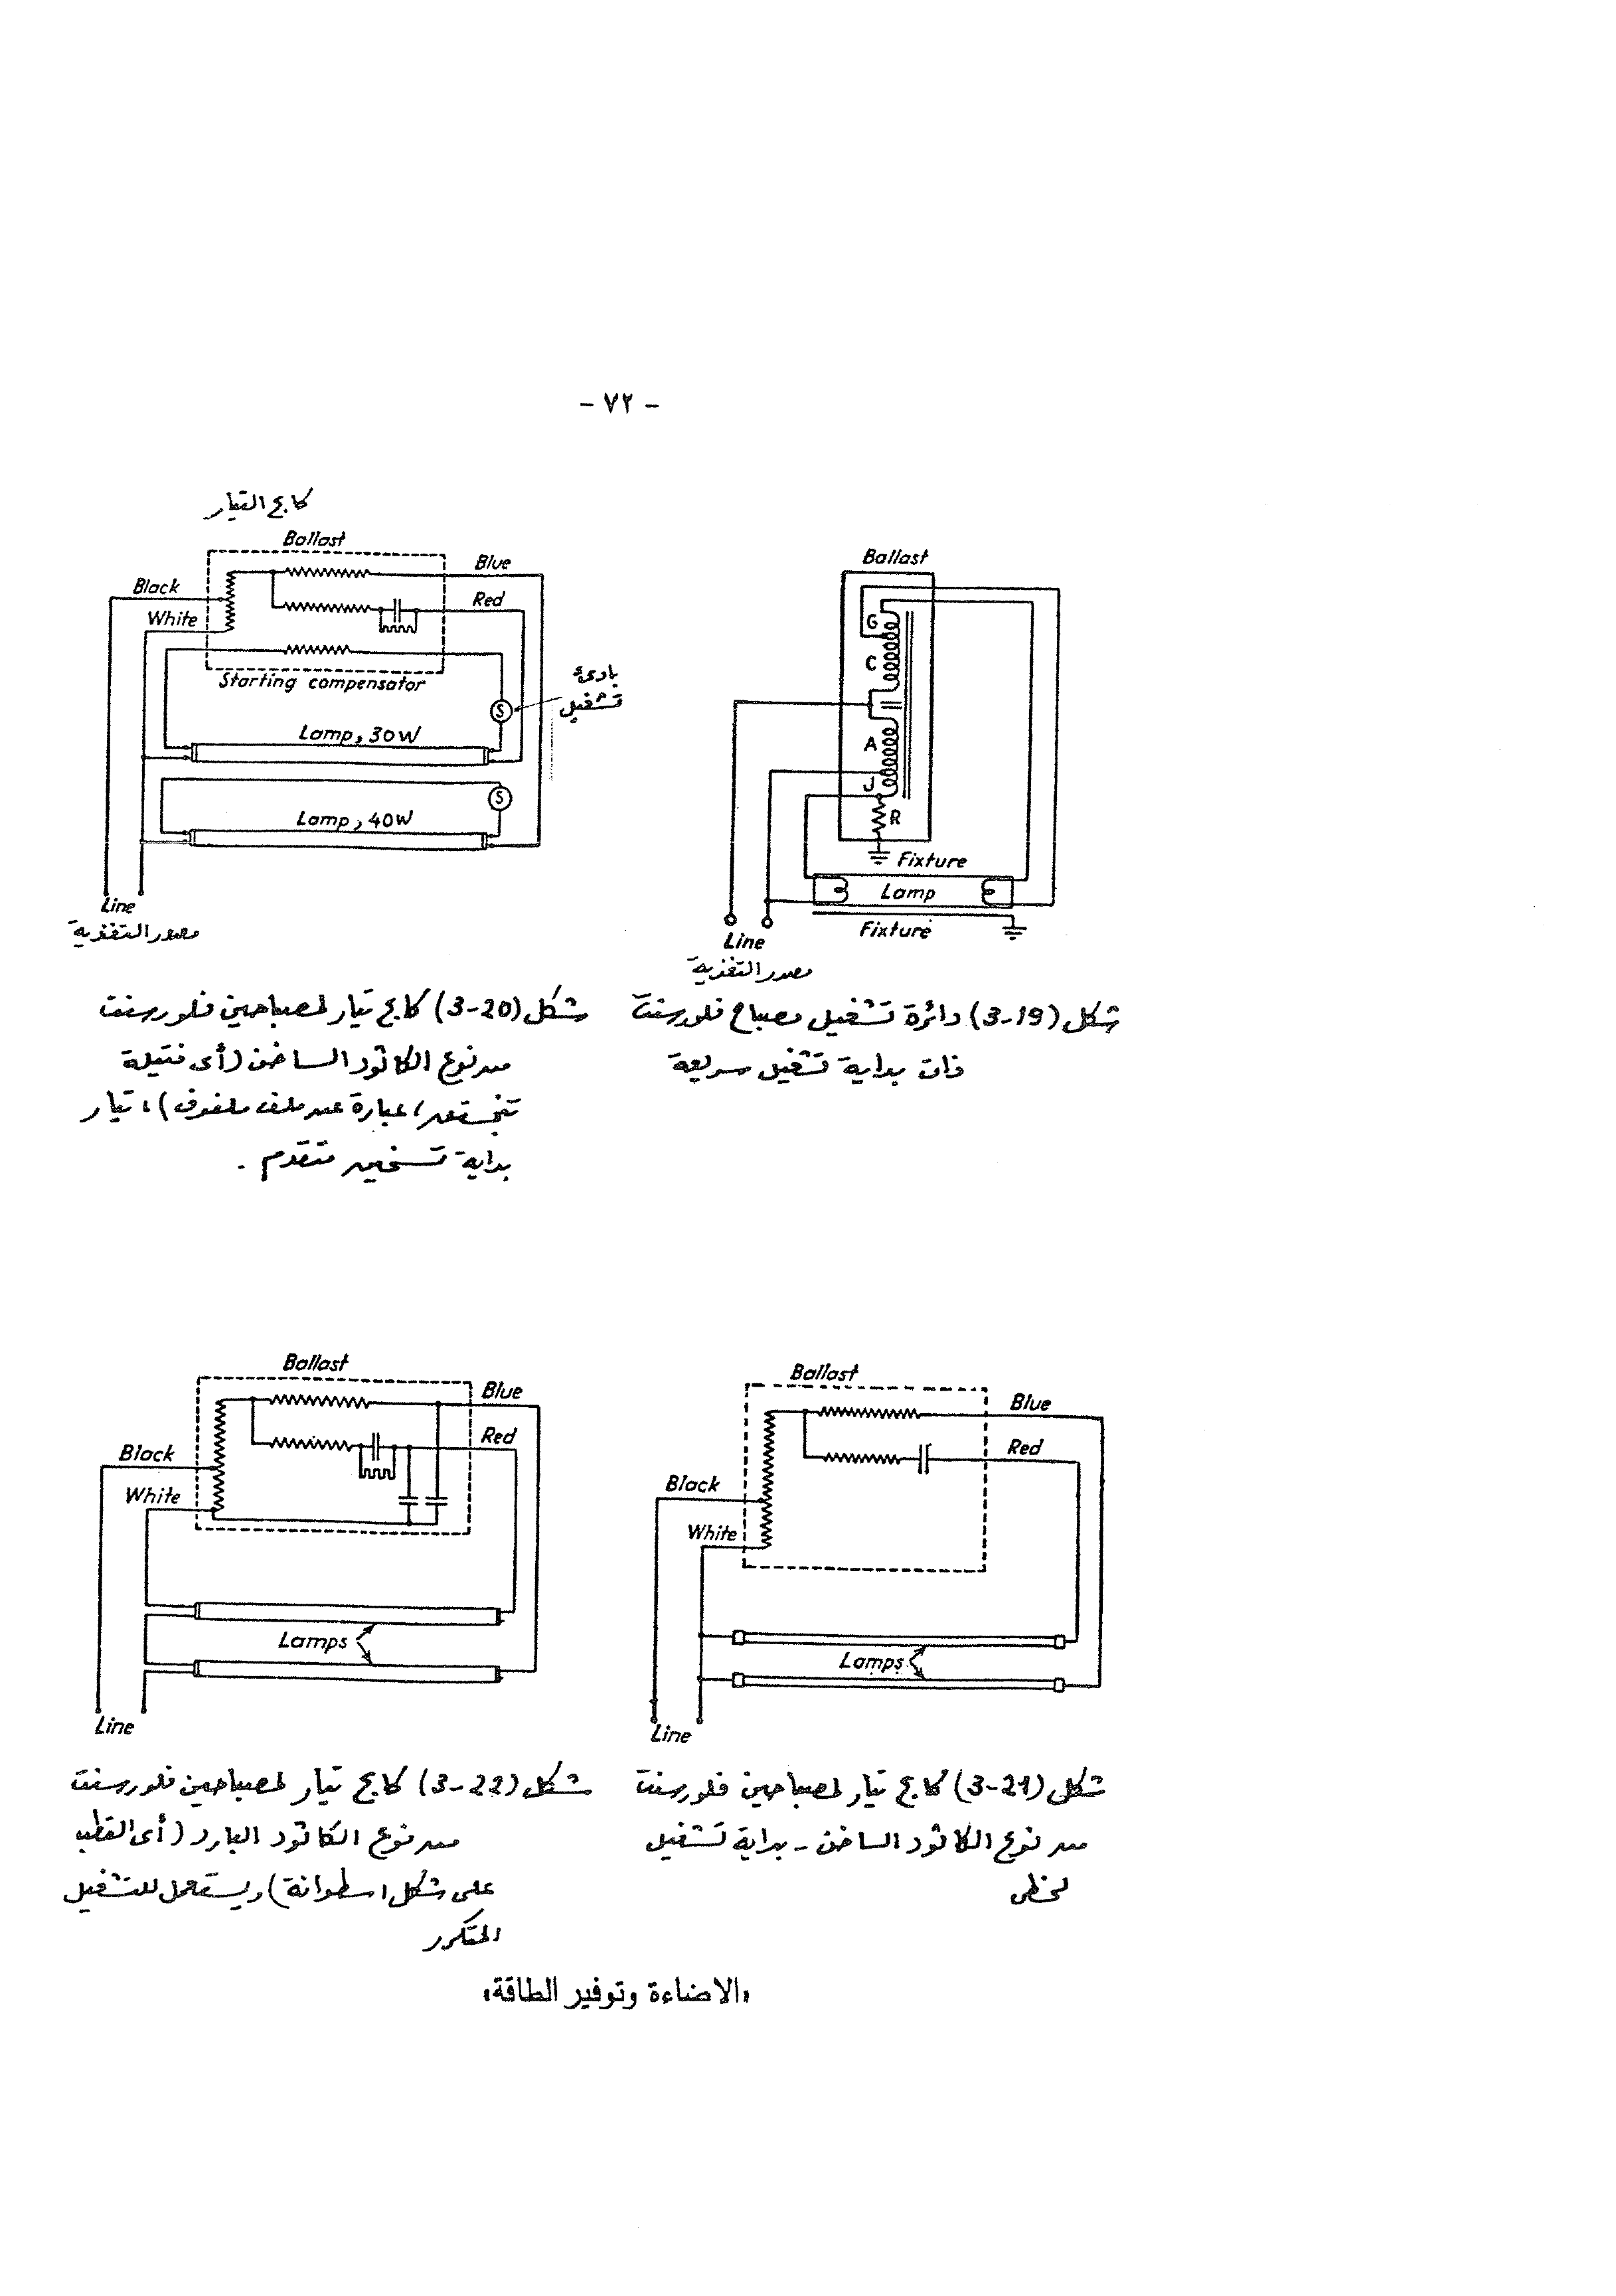 - ٧٢ -
Ballast
G
C
A
J
R
Fixture
Lamp
Fixture
Line
مصدر التغذية
شكل (3-19) دائرة تشغيل مصباح فلورسنت
ذات بداية تشغيل سريعة
كابح التيار
Ballast
Blue
Black
Red
White
Starting compensator
بادئ
تشغيل
S
Lamp, 30W
S
Lamp, 40W
Line
مصدر التغذية
شكل (3-20) كابح تيار لمصباحين فلورسنت
من نوع الكاثود الساخن (أى فتيلة
تنجستن، عبارة عن ملف ملفوف)، تيار
بداية تسخين متقدم .
Ballast
Blue
Red
Black
White
Lamps
Line
شكل (3-21) كابح تيار لمصباحين فلورسنت
من نوع الكاثود الساخن - بداية تشغيل
لحظى
Ballast
Blue
Red
Black
White
Lamps
Line
شكل (3-22) كابح تيار لمصباحين فلورسنت
من نوع الكاثود البارد (أى القطب
على شكل اسطوانة) ويستعمل للتشغيل
المتكرر
«الاضاءة وتوفير الطاقة»